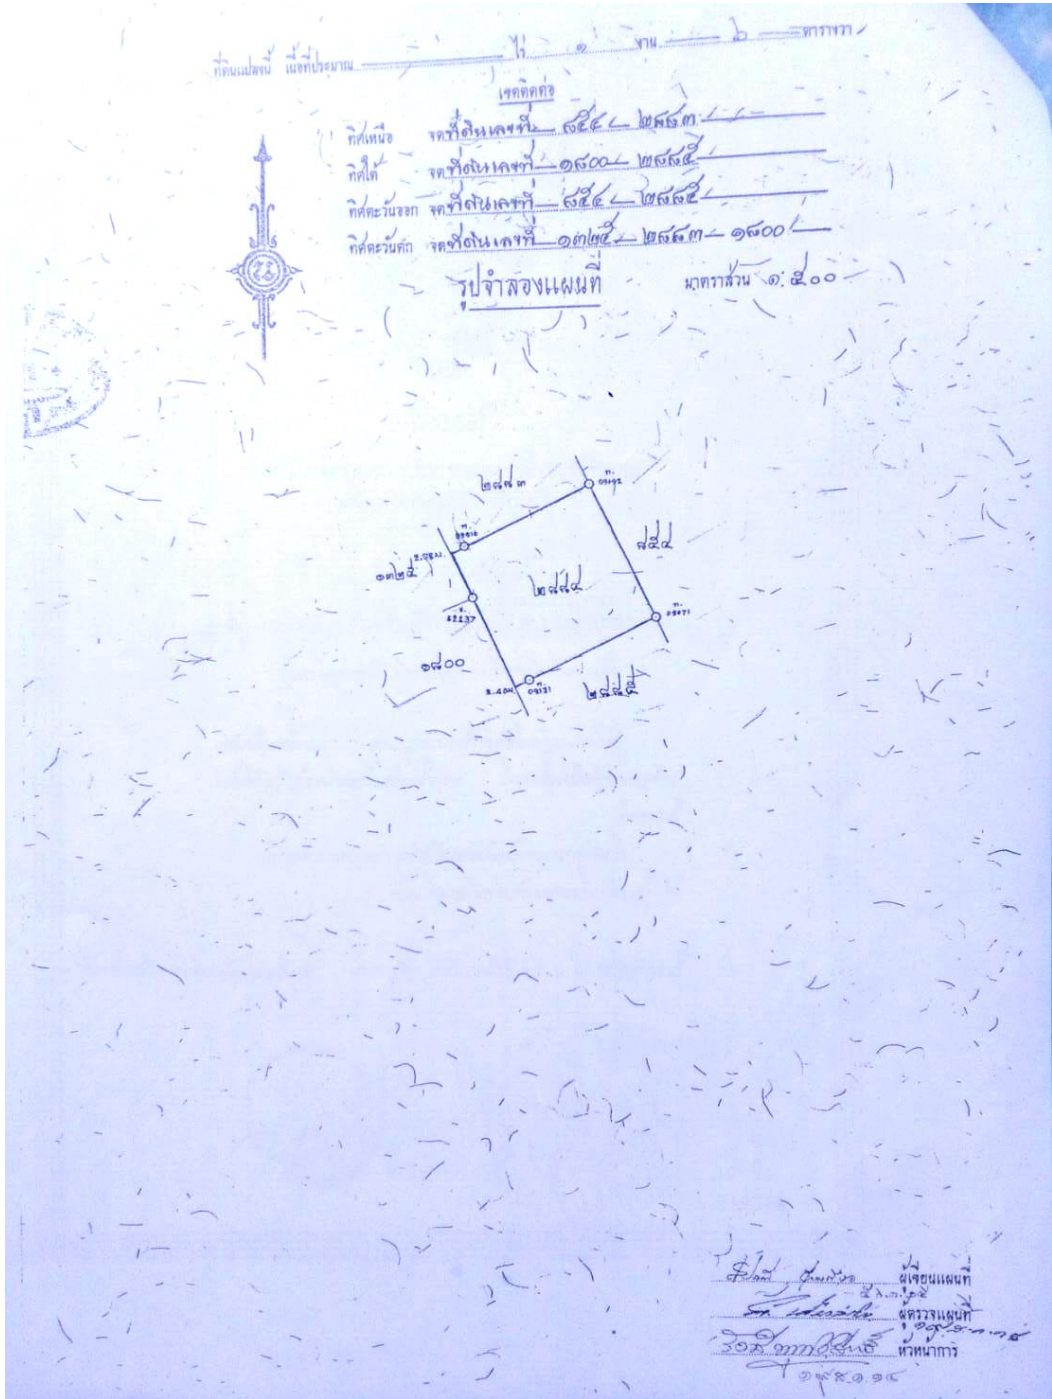 ที่ดินแปลงนี้ เนื้อที่ประมาณ — ไร่ ๑ งาน — ๖ — ตารางวา
เขตติดต่อ
ทิศเหนือ จดที่ดินเลขที่ — ๘๕๔ — ๒๘๘๓
ทิศใต้ จดที่ดินเลขที่ — ๑๘๐๐ — ๒๘๘๕
ทิศตะวันออก จดที่ดินเลขที่ — ๘๕๔ — ๒๘๘๕
ทิศตะวันตก จดที่ดินเลขที่ ๑๓๒๕ — ๒๘๘๓ — ๑๘๐๐
รูปจำลองแผนที่ มาตราส่วน ๑:๕๐๐
๒๘๘๓
๘๕๔
๑๓๒๕
๒๘๘๔
๑๘๐๐
๒๘๘๕
ผู้เขียนแผนที่
ผู้ตรวจแผนที่
หัวหน้าการ